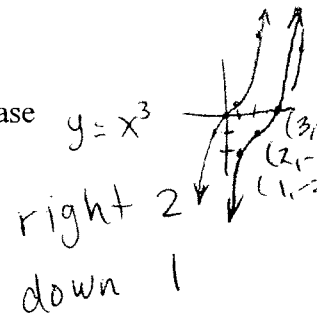 ase y = x³
(3,
(2, -
(1, -2
right 2
down 1